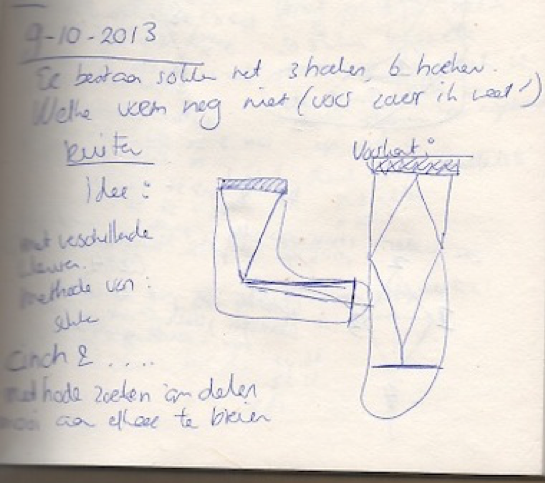 9-10-2013
Er bestaan sokken met 3 hoeken, 6 hoeken.
Welke vorm nog niet (voor zover ik weet!)
Ruiten
Voorkant:
Idee:
met verschillende
kleuren.
methode van:
sokken
&
methode zoeken om delen
mooi aan elkaar te breien